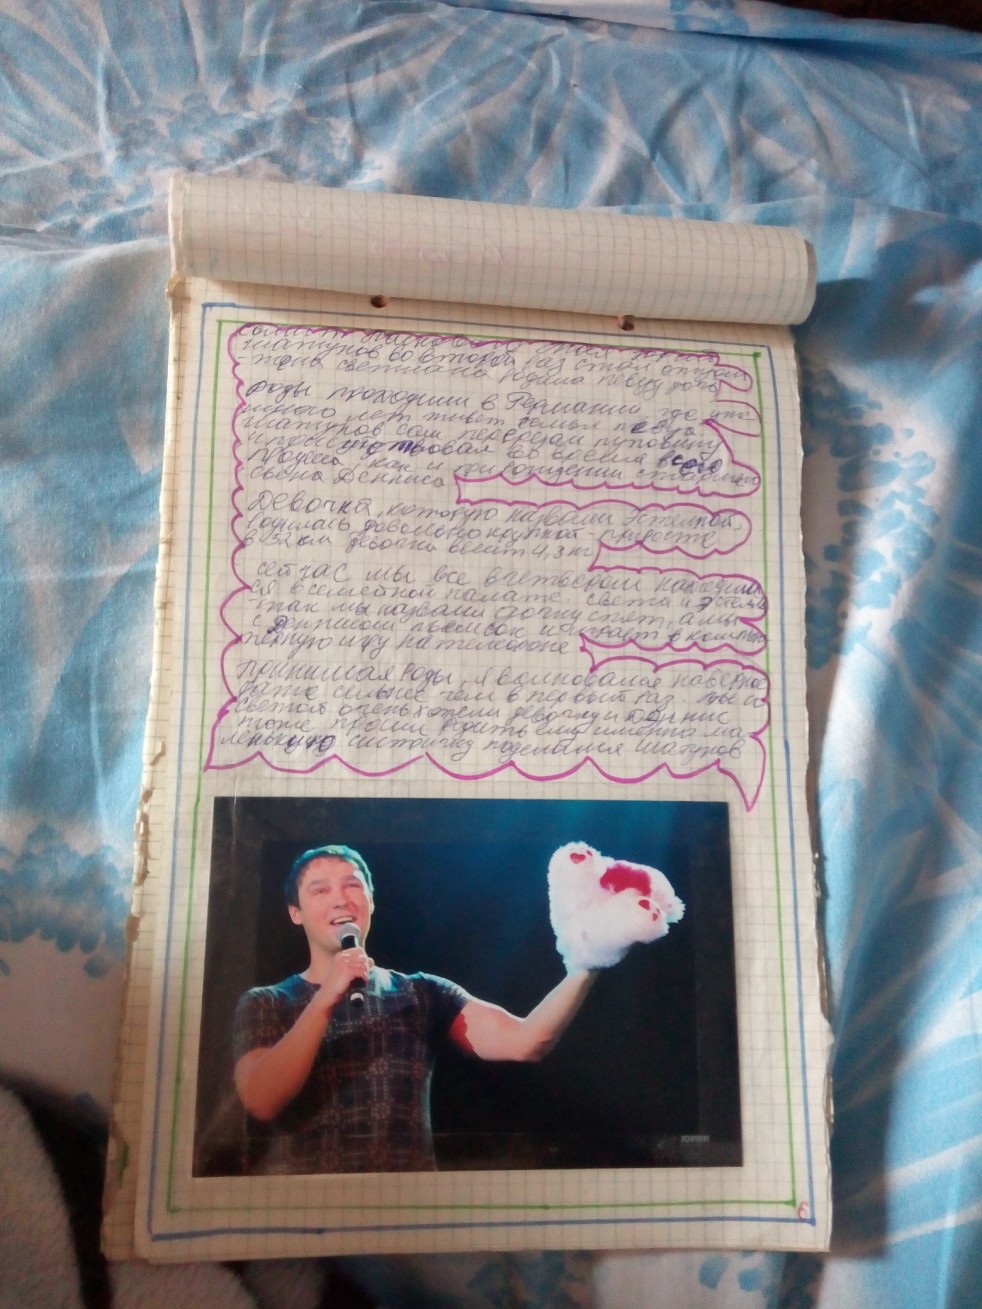 Солист Ласкового Мая Юрий
Шатунов во второй раз стал отцом
-жена Светлана родила певцу дочь
Роды проходили в Германии где уже
много лет живет семья певца
Шатунов сам перерезал пуповину
и присутствовал во время всего
процесса, как и при рождении старшего
сына Денниса
Девочка, которую назвали Эстеллой,
родилась довольно крупной - при росте
в 52 см девочка весит 4,3 кг
сейчас мы все вчетвером находим
ся в семейной палате. Света и Эстелла
-так мы назвали дочку спят, а мы
с Деннисом
терную игру на телефоне
принимая роды, я волновался наверное
даже сильнее чем в первый раз. мы со
светой очень хотели девочку и Деннис
тоже просил родить ему именно ма
ленькую сестричку поделился Шатунов
6